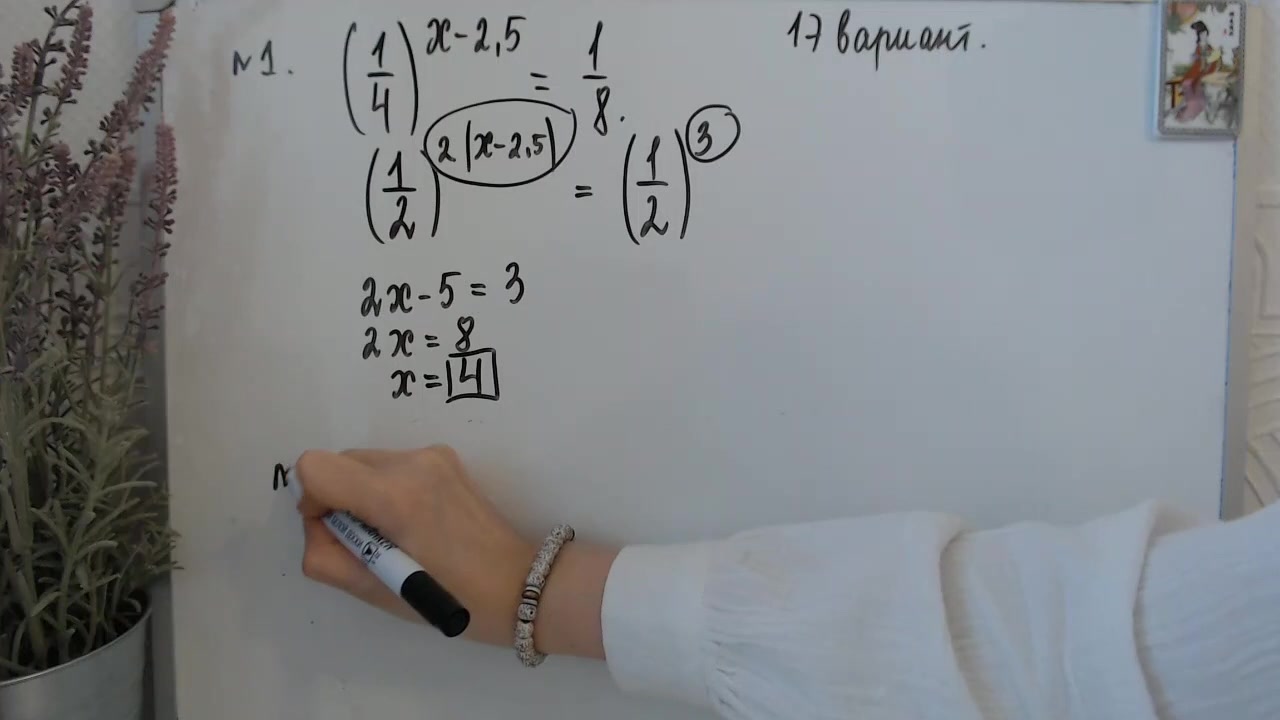 №1. (1/4)^{x-2,5} = 1/8.
17 вариант.
(1/2)^{2|x-2,5|} = (1/2)^3
2x-5=3
2x=8
x=4